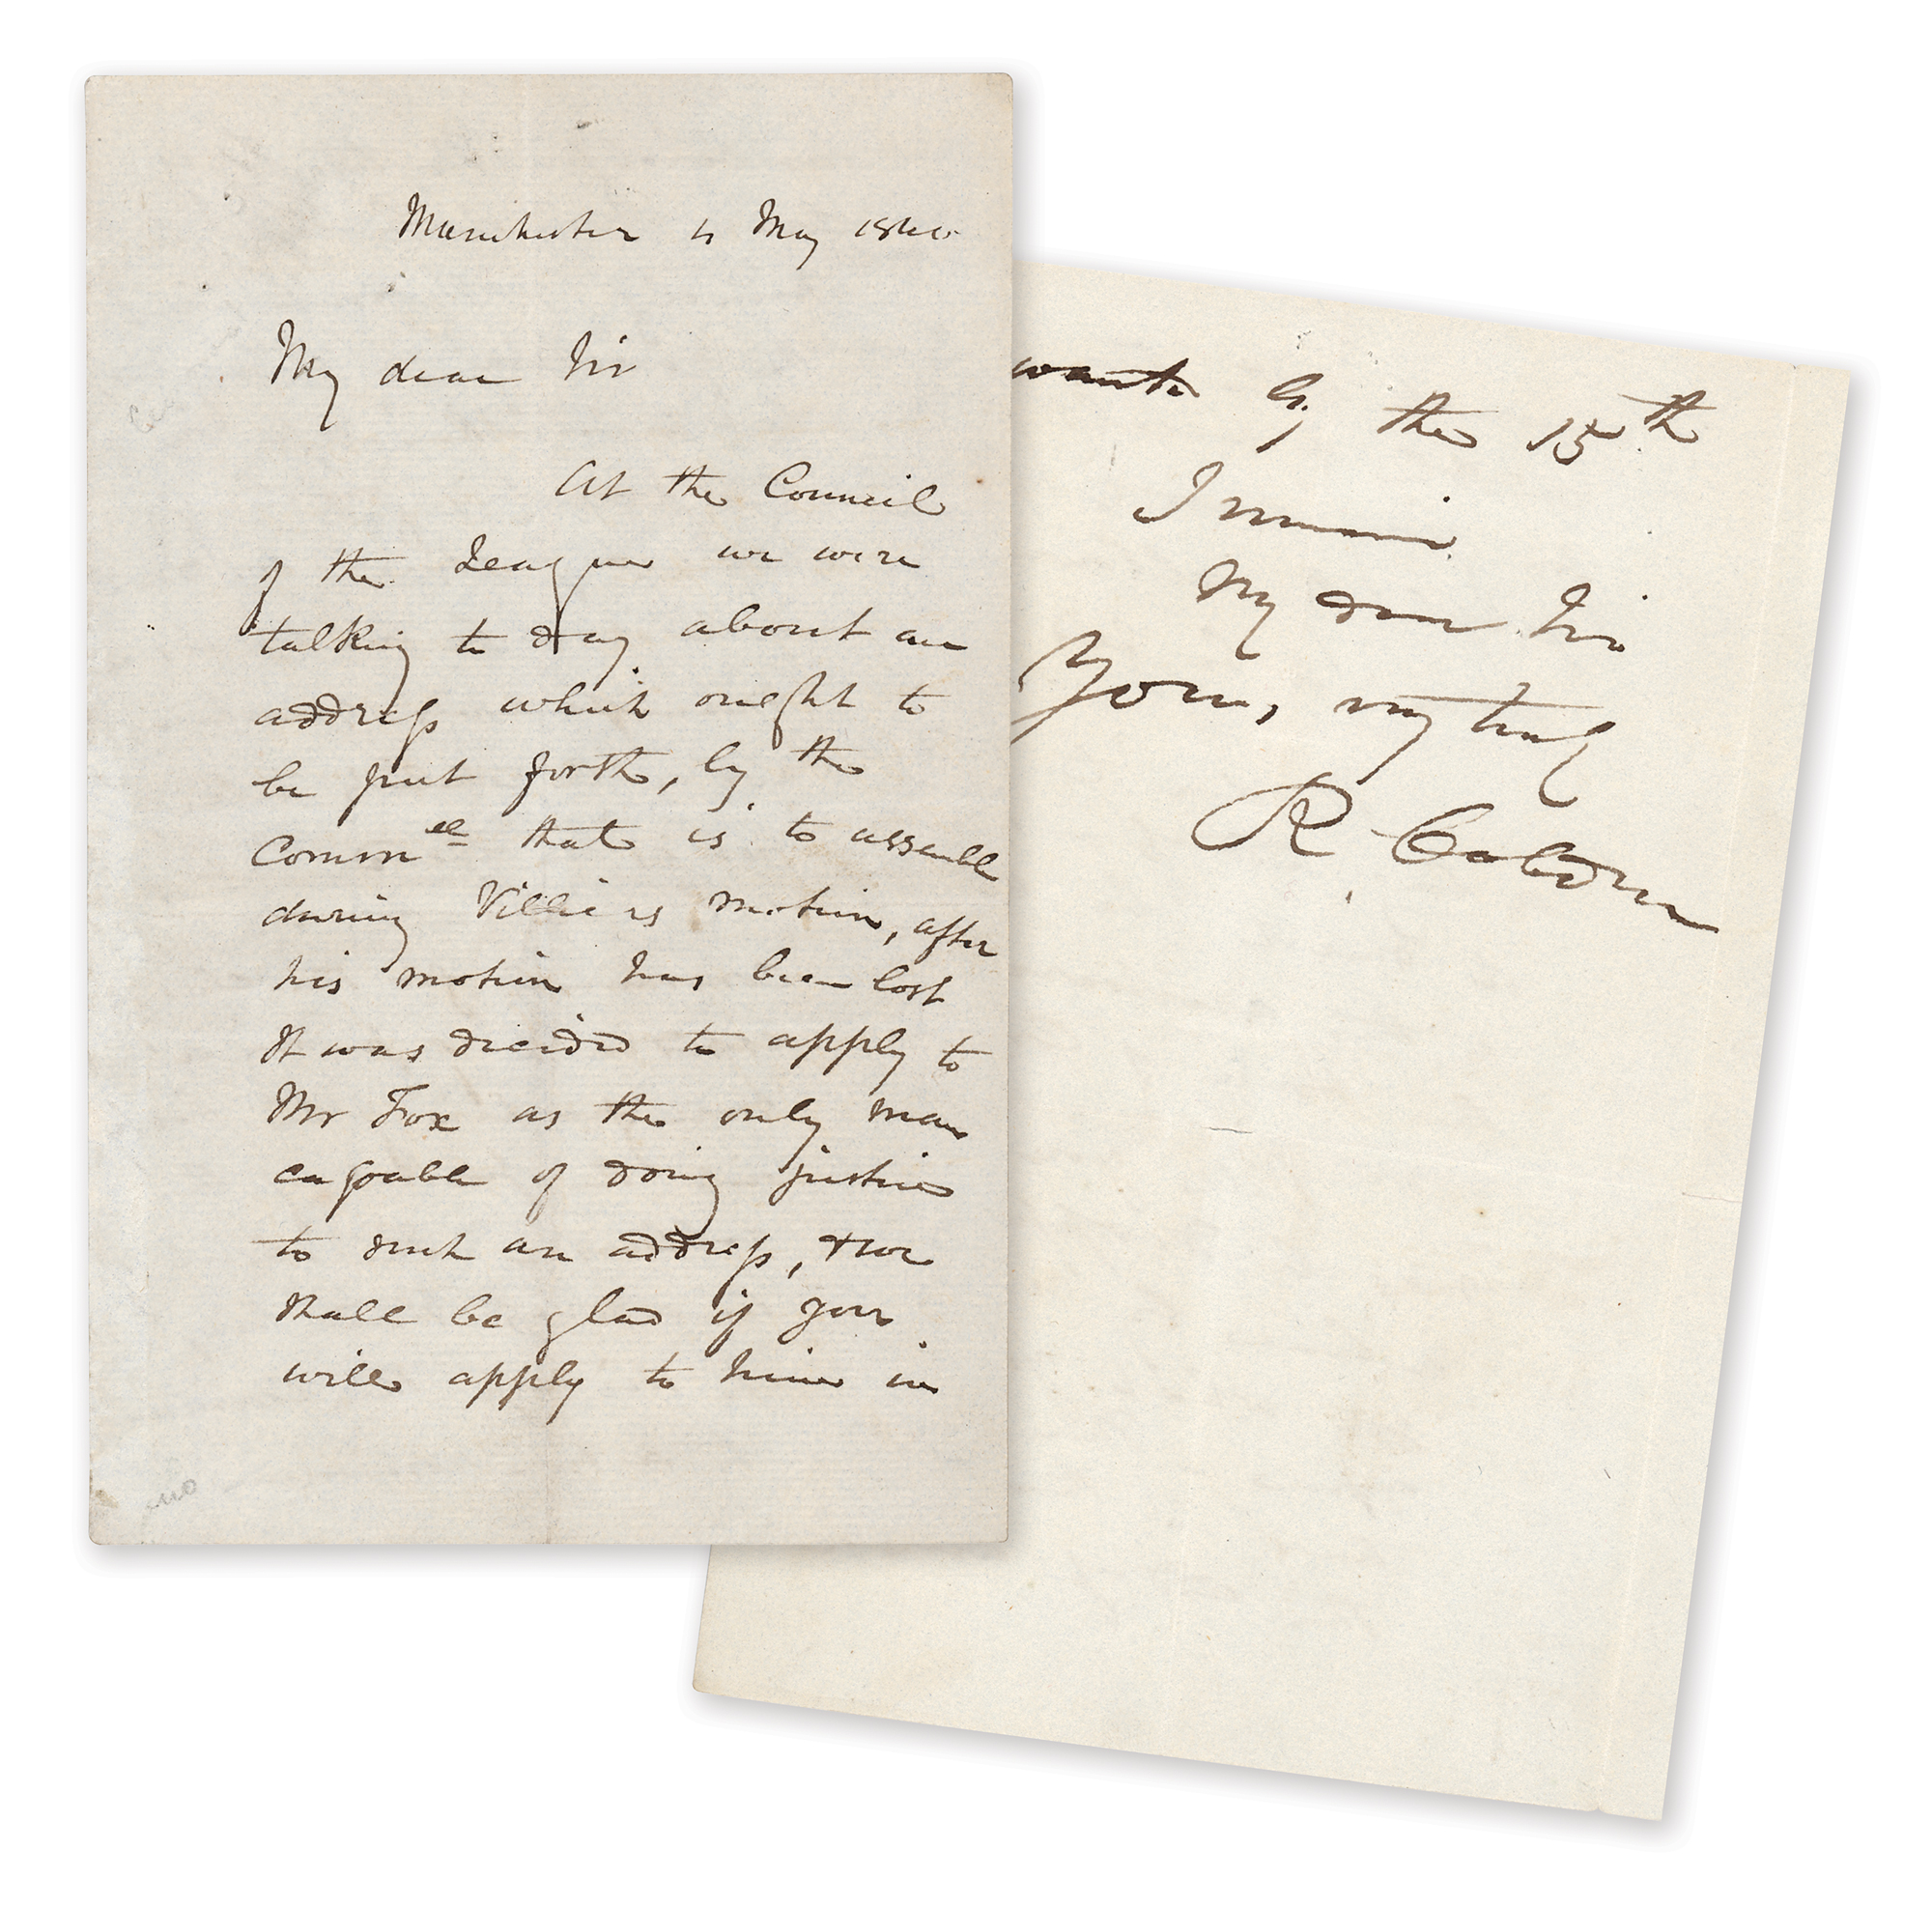 Manchester 4 May 184
My dear Sir
At the Council
of the League we were
talking to day about an
address which ought to
be put forth, by the
Comm^ee that is to assemble
during Villiers motion, after
his motion has been lost
It was decided to apply to
Mr Fox as the only man
capable of doing justice
to such an address, & we
shall be glad if you
will apply to him in
wanted by the 15th
I remain
My dear Sir
Yours, very truly
R Cobden